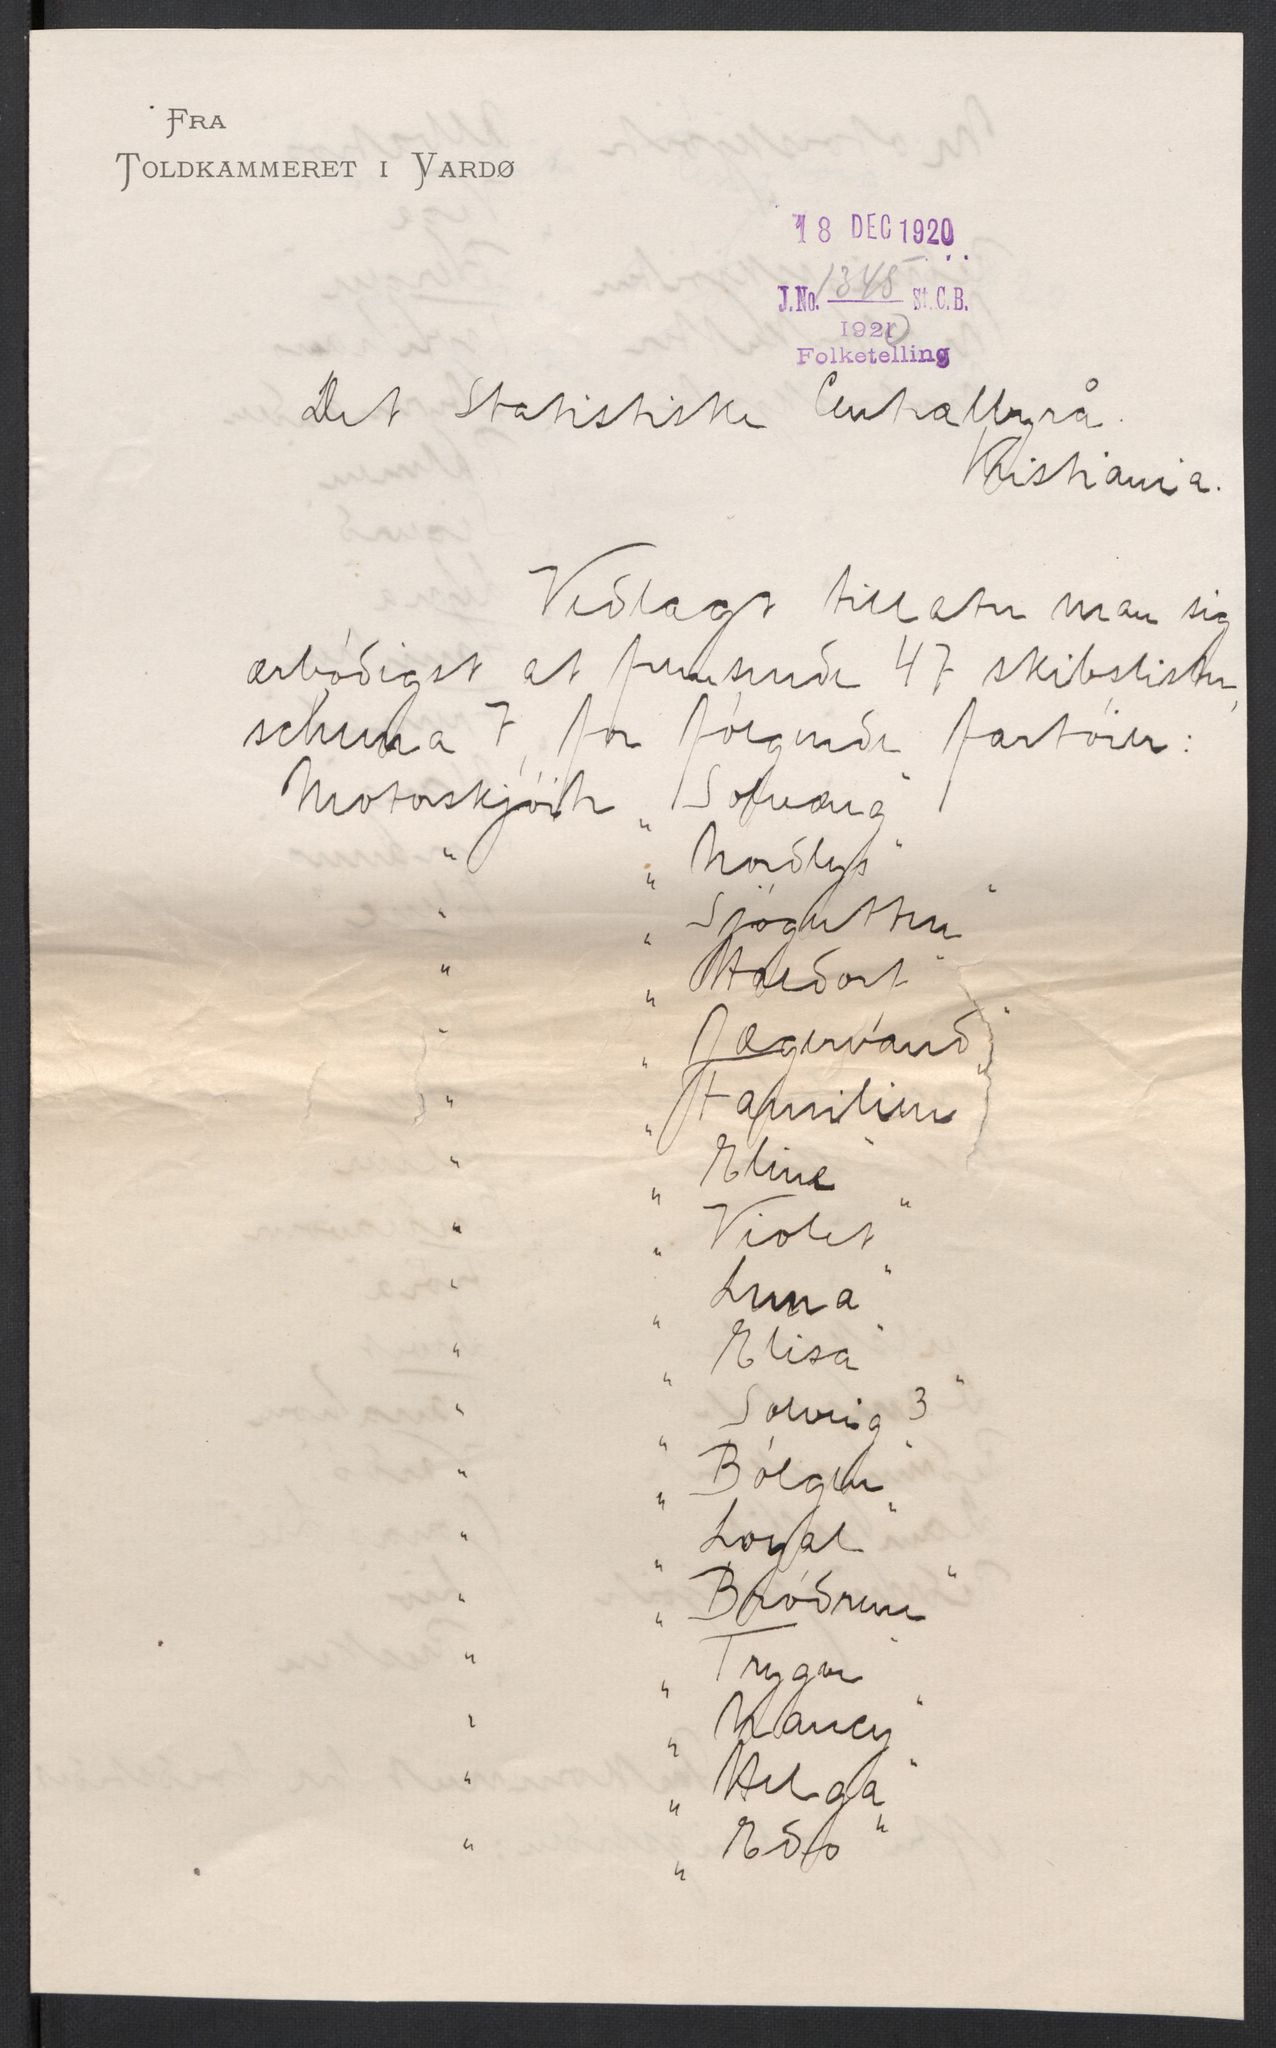 FRA
TOLDKAMMERET I VARDØ
18 DEC 1920
J.No. 1348 St.C.B.
1920
Folketelling
Det Statistiske Centralbyrå.
Kristiania.
Vedlagt tillater man sig
ærbødigst at fremsende 47 skibslister,
schema 7, for følgende fartöier:
Motorskjöite „Solvang"
" „Nordlys"
" „Sjøgutten"
" „Haldort"
" „Jægervand"
" „Familien"
" „Eline"
" „Violet"
" „Luna"
" „Elisa"
" „Solveig 3"
" „Bólgen"
" „Loyal"
" „Brödrene"
" „Trygve"
" „Nancy"
" „Helga"
" „Edo"